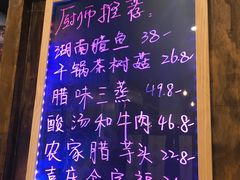 厨师推荐:
湖南鳇鱼 38-
干锅茶树菇 26.8-
腊味三蒸 49.8-
酸汤和牛肉 46.8-
农家腊芋头 22.8-